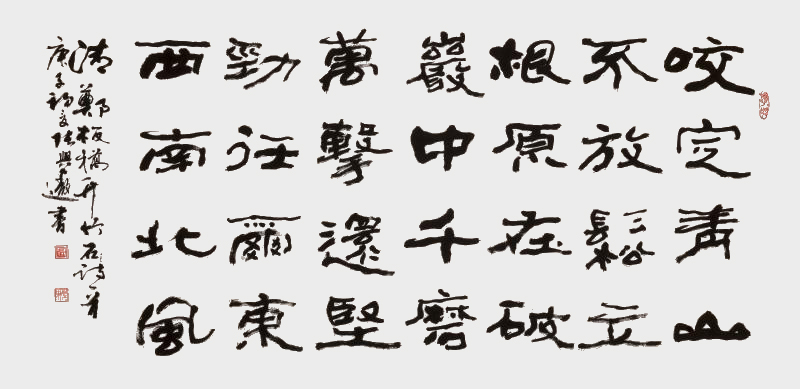 咬定青山
不放鬆立
根原在破
巖中千磨
萬擊還堅
勁任爾東
西南北風
清鄭板橋竹石詩一首
庚子初夏興書